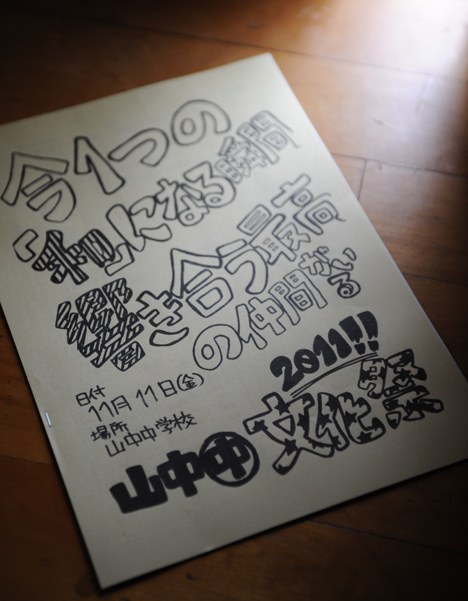 今1つの
「和」になる瞬間
響き合う最高
の仲間がいる
日付
11月11日(金)
場所
山中中学校
2011!!
山中中文化祭